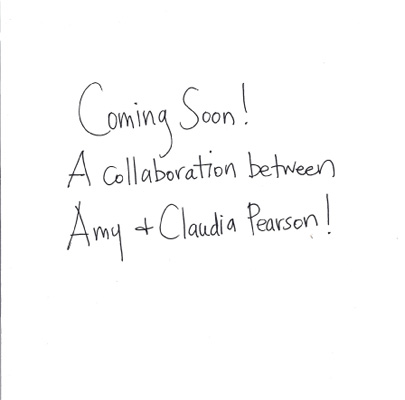 Coming Soon!
A collaboration between
Amy + Claudia Pearson!